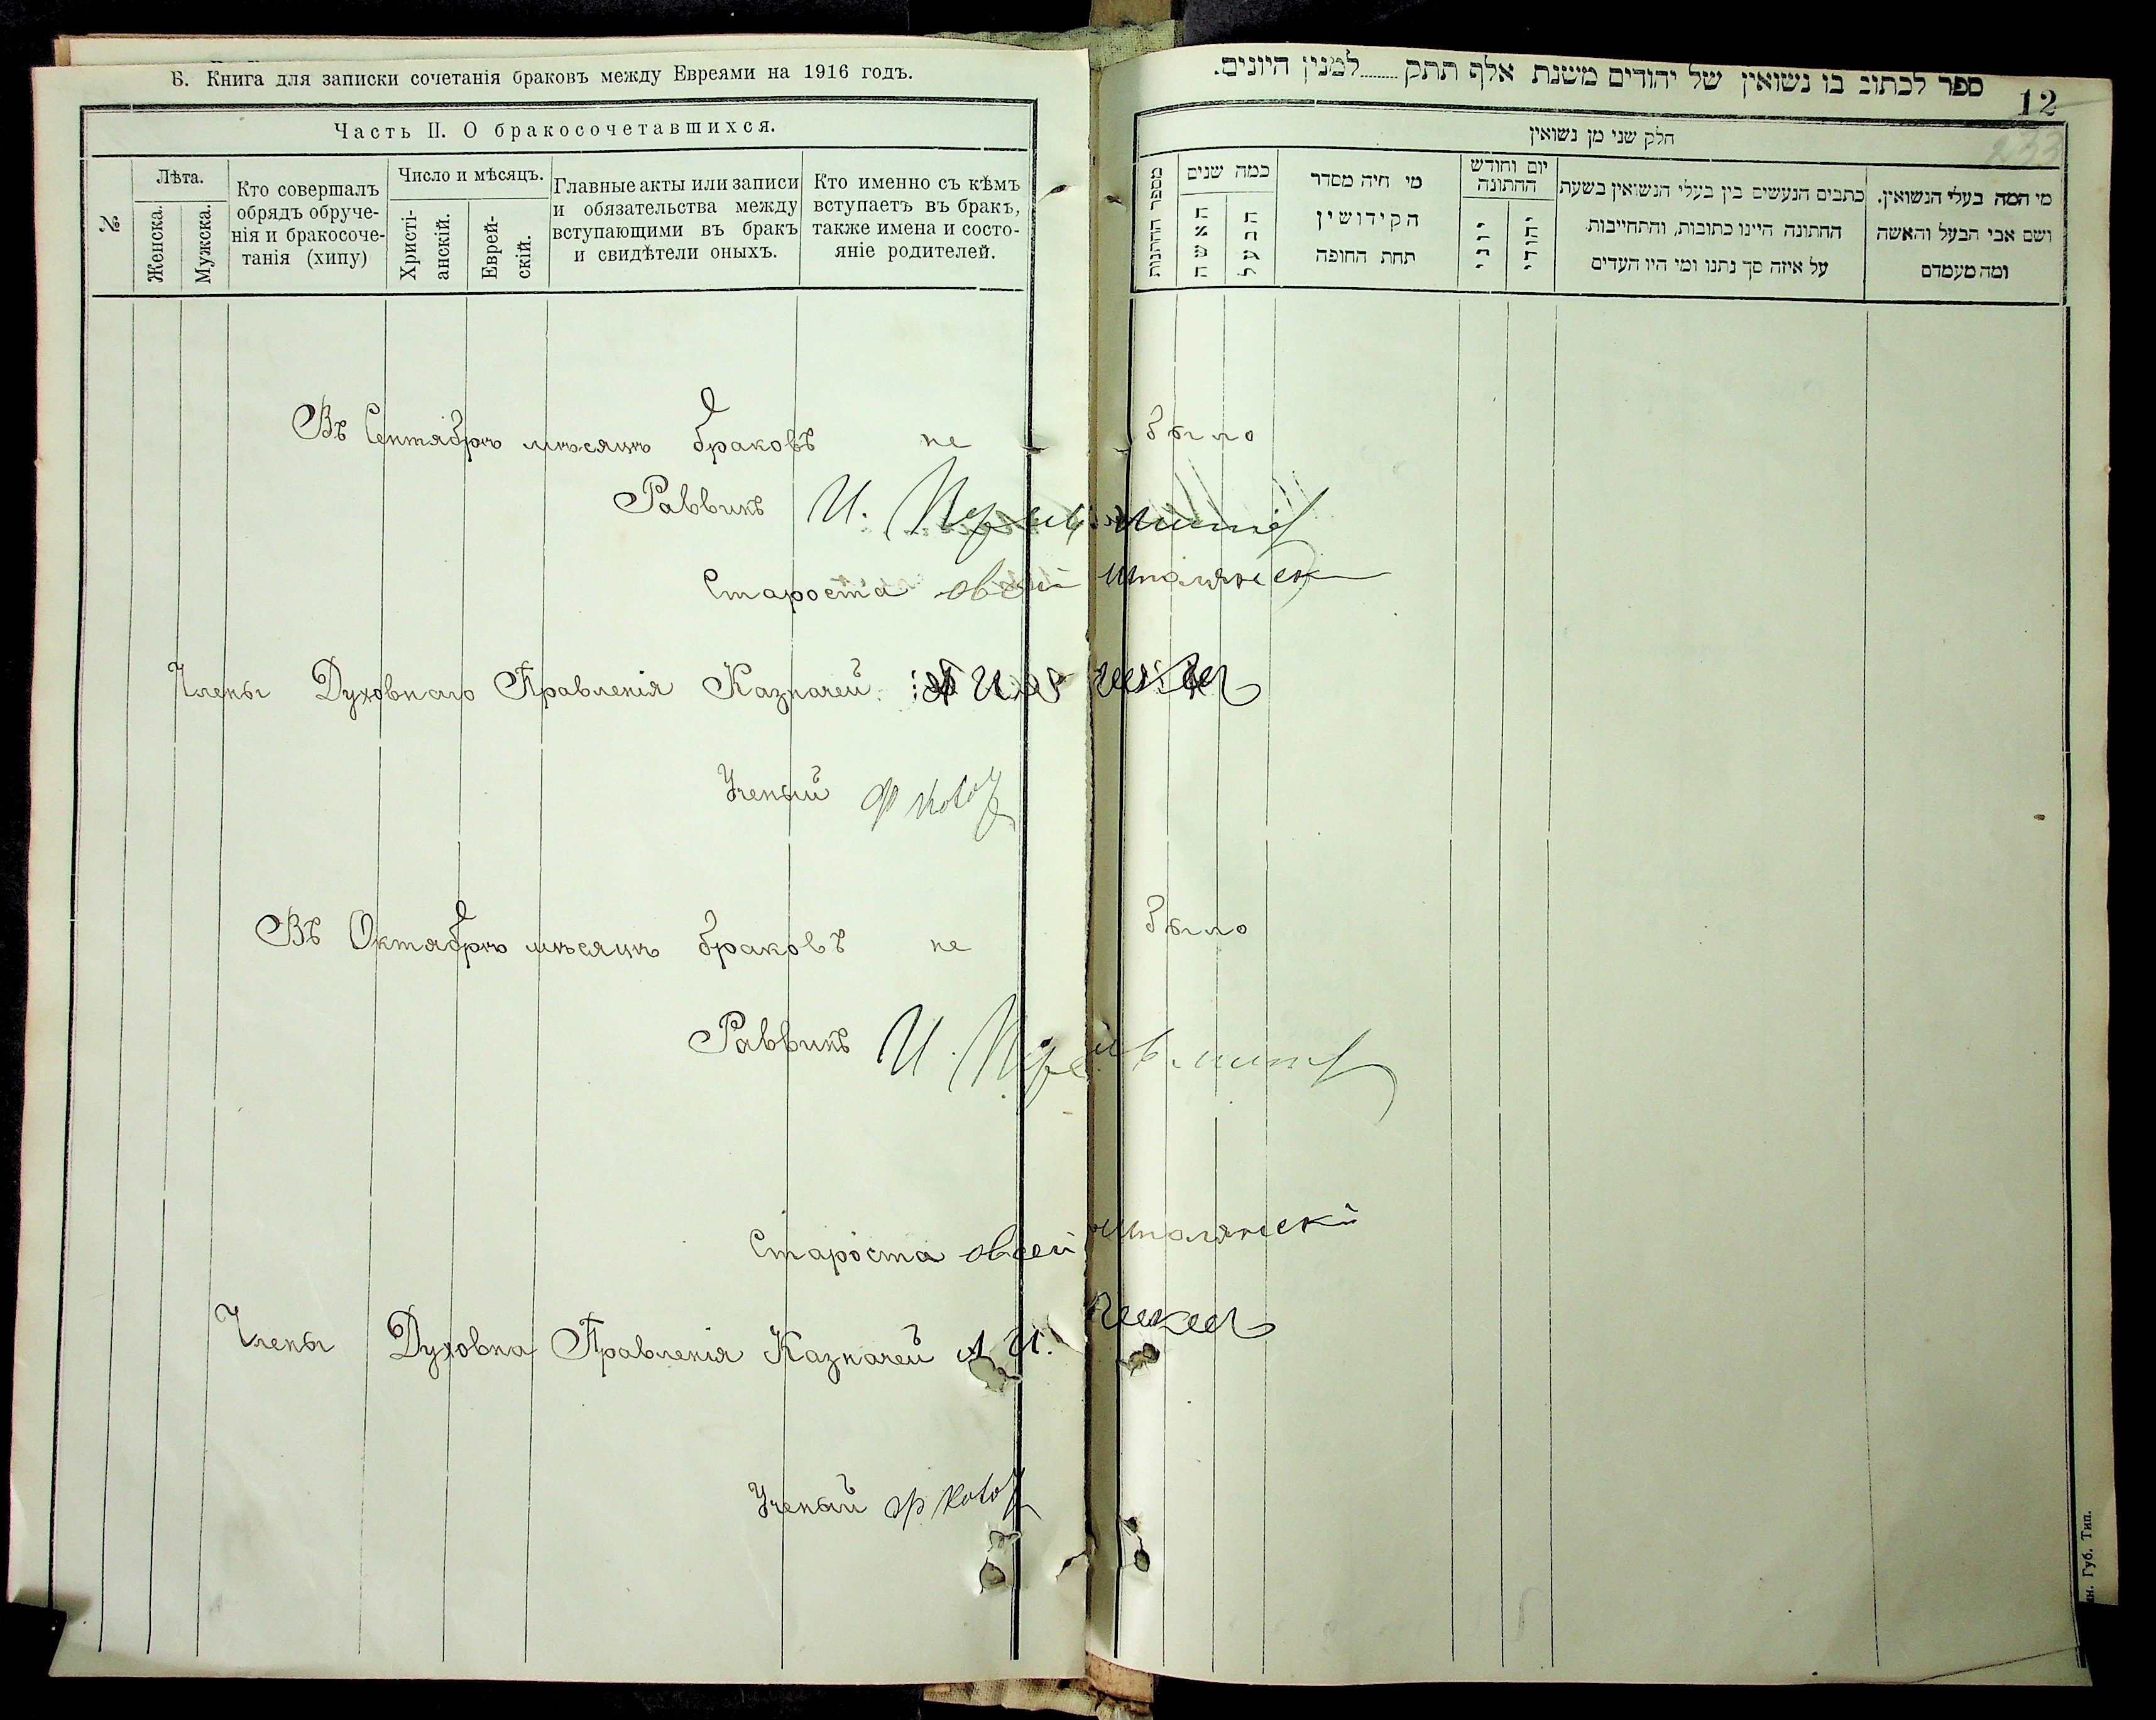 Б. Книга для записки сочетанія браковъ между Евреями на 1916 годъ.
Часть II. О бракосочетавшихся.
№
Лѣта.
Женска.
Мужска.
Кто совершалъ
обрядъ обруче-
нія и бракосоче-
танія (хипу)
Число и мѣсяцъ.
Христі-
анскій.
Еврей-
скій.
Главные акты или записи
и обязательства между
вступающими въ бракъ
и свидѣтели оныхъ.
Кто именно съ кѣмъ
вступаетъ въ бракъ,
также имена и состо-
яніе родителей.
ספר לכתוב בו נשואין של יהודים משנת אלף תתק........למנין היונים.
12
233
חלק שני מן נשואין
מספר החתונות
כמה שנים
האשה
הבעל
מי היה מסדר
הקידושין
תחת החופה
יום וחודש
החתונה
יוני
יהודי
כתבים הנעשים בין בעלי הנשואין בשעת
החתונה היינו כתובות, והתחייבות
על איזה סך נתנו ומי היו העדים
מי המה בעלי הנשואין.
ושם אבי הבעל והאשה
ומה מעמדם
Въ Сентябрѣ мѣсяцѣ браковъ не было
Раввинъ И.
Староста овсей
Члены Духовнаго Правленія Казначей
Ученый
Въ Октябрѣ мѣсяцѣ браковъ не было
Раввинъ И.
Староста овсей
Члены Духовна Правленія Казначей
Ученый
Губ. Тип.